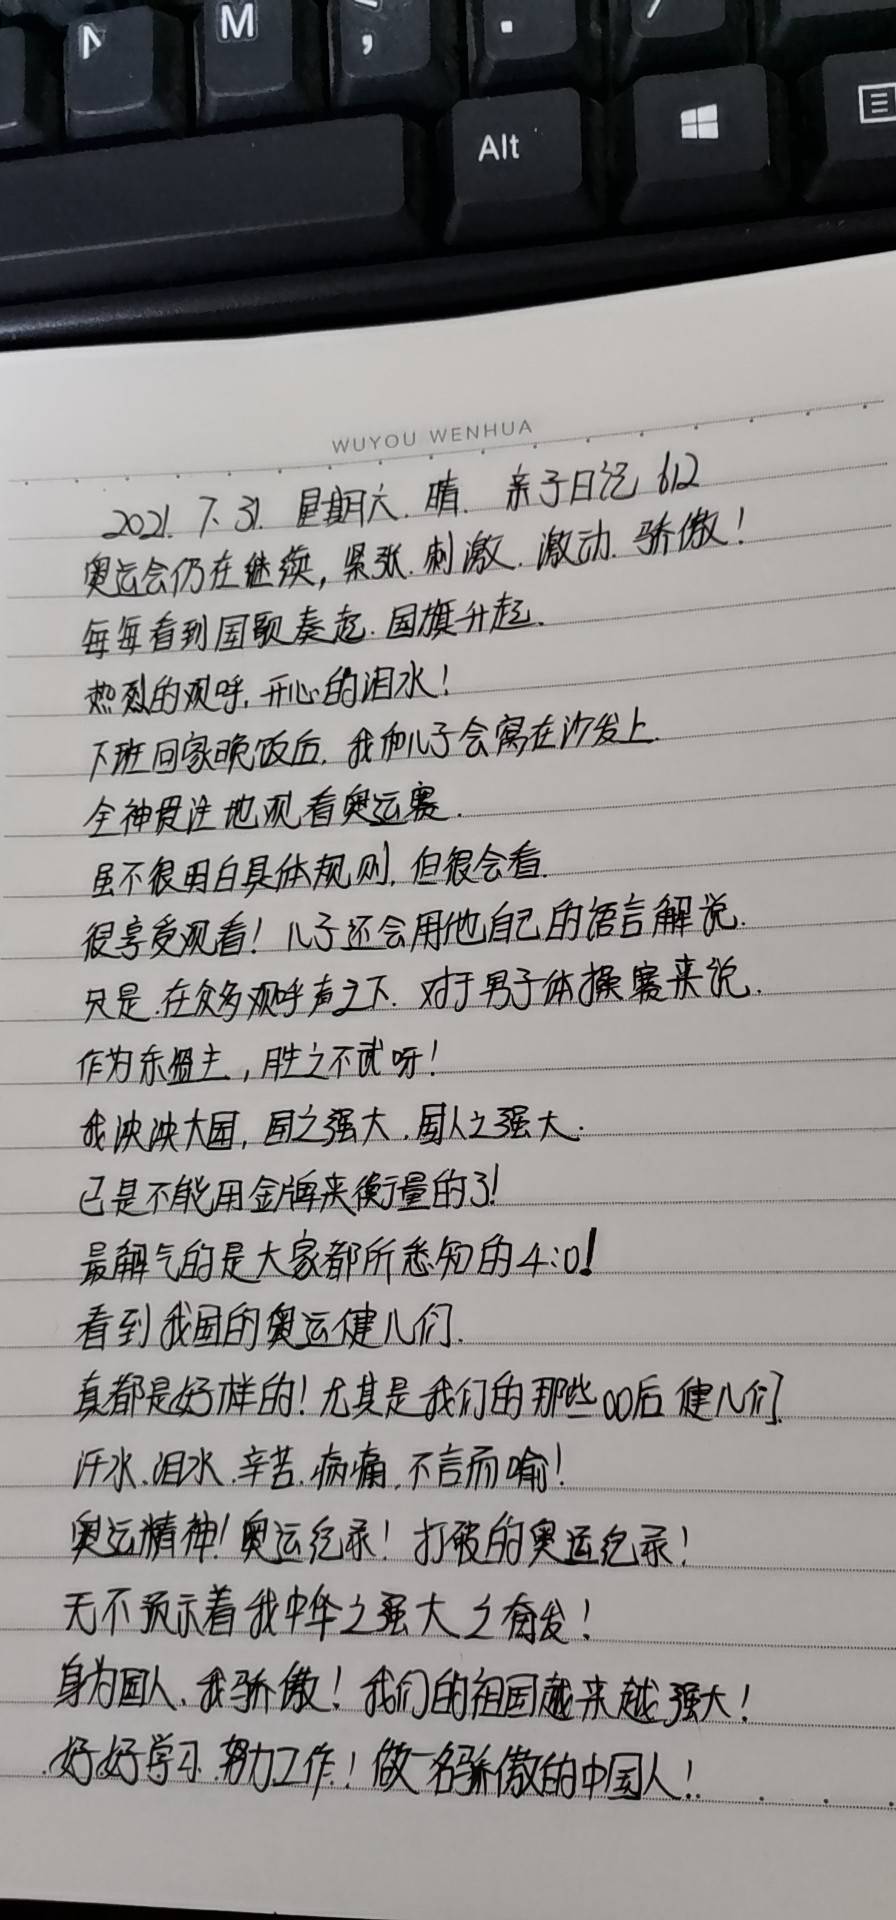 M
,
.
/
Alt
WUYOU WENHUA
2021. 7. 31. 星期六. 晴. 亲子日记 612
奥运会仍在继续, 紧张. 刺激. 激动. 骄傲!
每每看到国歌奏起. 国旗升起.
热烈的观呼, 开心的泪水!
下班回家晚饭后, 我和儿子会窝在沙发上.
全神贯注地观看奥运赛.
虽不很明白具体规则, 但很会看.
很享受观看! 儿子还会用他自己的语言解说.
只是. 在众多观呼声之下. 对于男子体操赛来说.
作为东盟主, 胜之不武呀!
我泱泱大国, 国之强大. 国人之强大.
已是不能用金牌来衡量的了!
最解气的是大家都所悉知的4:0!
看到我国的奥运健儿们.
真都是好样的! 尤其是我们的那些00后健儿们.
汗水. 泪水. 辛苦. 病痛. 不言而喻!
奥运精神! 奥运纪录! 打破的奥运纪录!
无不预示着我中华之强大之奋发!
身为国人, 我骄傲! 我们的祖国越来越强大!
好好学习. 努力工作! 做一名骄傲的中国人!